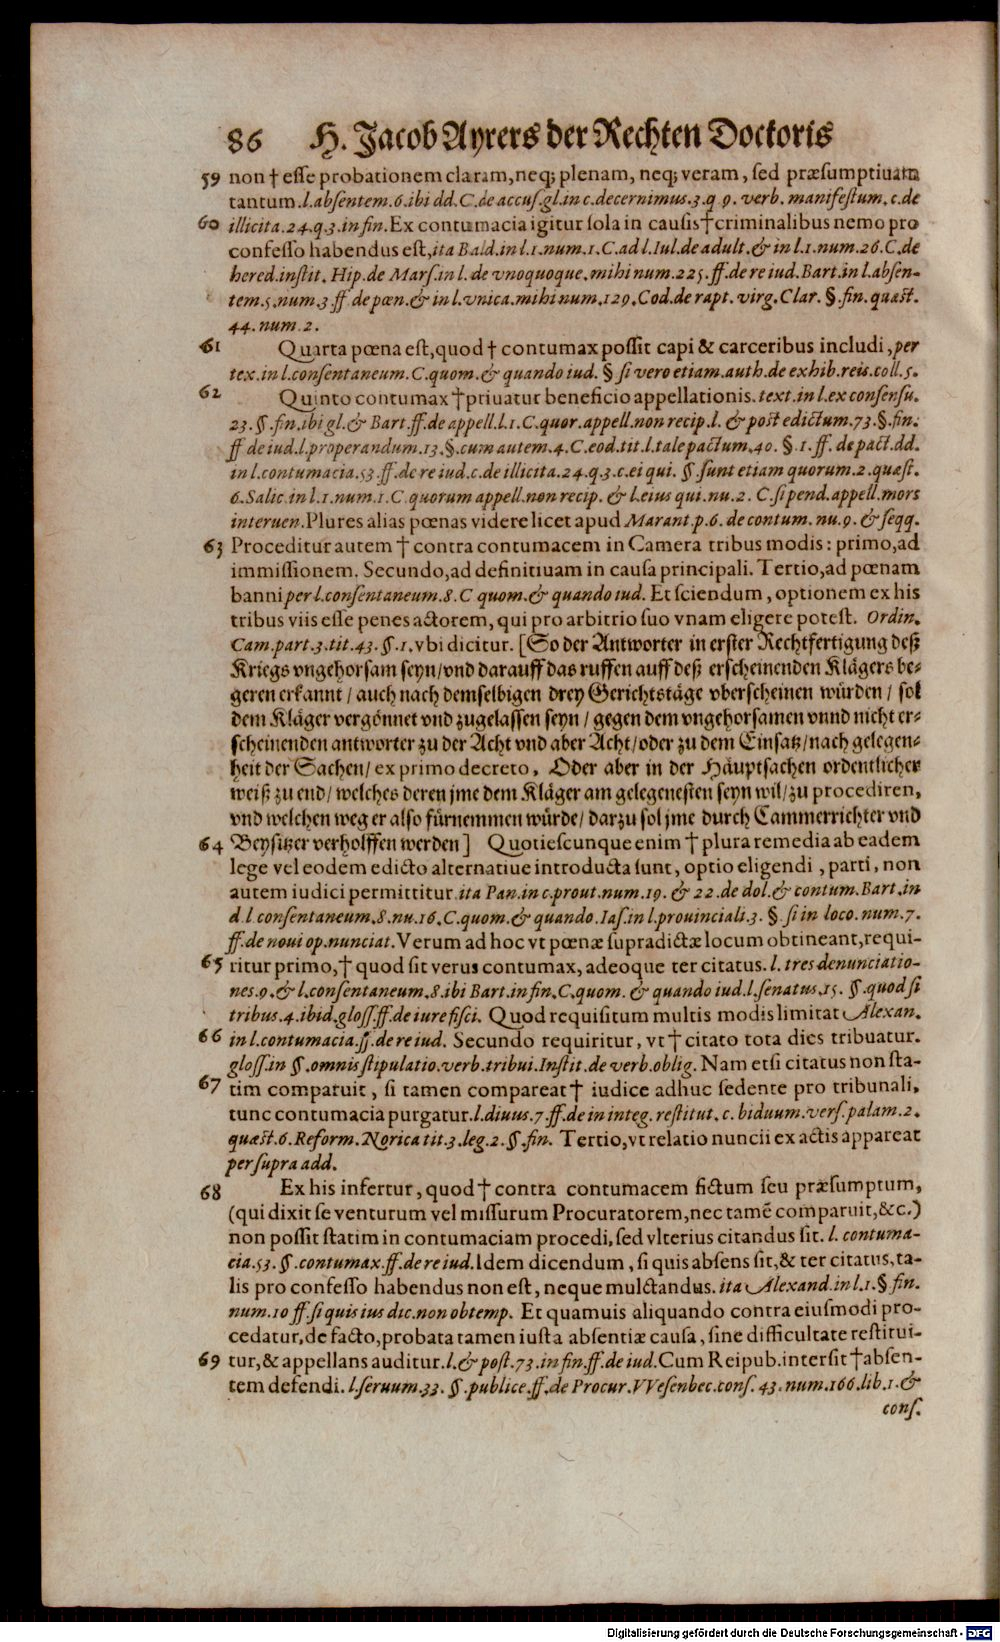 86 H. Jacob Ayrers der Rechten Doctoris
59 non † esse probationem claram, neq; plenam, neq; veram, sed præsumptiuam
tantum. l. absentem. 6. ibi dd. C. de accus. gl. in c. decernimus. 3. q 9. verb. manifestum. c. de
60 illicita. 24. q. 3. in fin. Ex contumacia igitur sola in causis † criminalibus nemo pro
confesso habendus est, ita Bald. in l. 1. num. 1. C. ad l. Iul. de adult. & in l. 1. num. 26. C. de
hered. instit. Hip. de Mars. in l. de vnoquoque. mihi num. 225. ff. de re iud. Bart. in l. absen-
tem. 5. num. 3 ff. de pœn. & in l. vnica. mihi num. 129. Cod. de rapt. virg. Clar. §. fin. quæst.
44. num. 2.
61 Quarta pœna est, quod † contumax possit capi & carceribus includi, per
tex. in l. consentaneum. C. quom. & quando iud. § si vero etiam. auth. de exhib. reis. coll. 5.
62 Quinto contumax † priuatur beneficio appellationis. text. in l. ex consensu.
23. §. fin. ibi gl. & Bart. ff. de appell. l. 1. C. quor. appell. non recip. l. & post edictum. 73. §. fin.
ff de iud. l. properandum. 13. §. cum autem. 4. C. eod. tit. l. tale pactum. 40. §. 1. ff. de pact. dd.
in l. contumacia. 53. ff. de re iud. c. de illicita. 24. q. 3. c. ei qui. §. sunt etiam quorum. 2. quæst.
6. Salic. in l. 1. num. 1. C. quorum appell. non recip. & l. eius qui. nu. 2. C. si pend. appell. mors
interuen. Plures alias pœnas videre licet apud Marant. p. 6. de contum. nu. 9. & seqq.
63 Proceditur autem † contra contumacem in Camera tribus modis: primo, ad
immissionem. Secundo, ad definitiuam in causa principali. Tertio, ad pœnam
banni per l. consentaneum. 8. C quom. & quando iud. Et sciendum, optionem ex his
tribus viis esse penes actorem, qui pro arbitrio suo vnam eligere potest. Ordin.
Cam. part. 3. tit. 43. §. 1. vbi dicitur. [So der Antworter in erster Rechtfertigung deß
Kriegs vngehorsam seyn/ vnd darauff das ruffen auff deß erscheinenden Klägers be-
geren erkannt/ auch nach demselbigen drey Gerichtstäge vberscheinen würden/ sol
dem Kläger vergönnet vnd zugelassen seyn/ gegen dem vngehorsamen vnnd nicht er-
scheinenden antworter zu der Acht vnd aber Acht/ oder zu dem Einsatz/ nach gelegen-
heit der Sachen/ ex primo decreto. Oder aber in der Häuptsachen ordentlicher
weiß zu end/ welches deren jme dem Kläger am gelegenesten seyn wil/ zu procediren,
vnd welchen weg er also fürnemmen würde/ darzu sol jme durch Cammerrichter vnd
64 Beysitzer verholffen werden] Quotiescunque enim † plura remedia ab eadem
lege vel eodem edicto alternatiue introducta sunt, optio eligendi, parti, non
autem iudici permittitur. ita Pan. in c. prout. num. 19. & 22. de dol. & contum. Bart. in
d. l. consentaneum. 8. nu. 16. C. quom. & quando. Ias. in l. prouinciali. 3. §. si in loco. num. 7.
ff. de noui op. nunciat. Verum ad hoc vt pœnæ supradictæ locum obtineant, requi-
65 ritur primo, † quod sit verus contumax, adeoque ter citatus. l. tres denunciatio-
nes. 9. & l. consentaneum. 8. ibi Bart. in fin. C. quom. & quando iud. l. senatus. 15. §. quod si
tribus. 4. ibid. gloss. ff. de iure fisci. Quod requisitum multis modis limitat Alexan.
66 in l. contumacia. ff. de re iud. Secundo requiritur, vt † citato tota dies tribuatur.
gloss. in §. omnis stipulatio. verb. tribui. Instit. de verb. oblig. Nam etsi citatus non sta-
67 tim comparuit, si tamen compareat † iudice adhuc sedente pro tribunali,
tunc contumacia purgatur. l. diuus. 7. ff. de in integ. restitut. c. biduum. vers. palam. 2.
quæst. 6. Reform. Norica tit. 3. leg. 2. §. fin. Tertio, vt relatio nuncii ex actis appareat
per supra add.
68 Ex his infertur, quod † contra contumacem fictum seu præsumptum,
(qui dixit se venturum vel missurum Procuratorem, nec tamē comparuit, &c.)
non possit statim in contumaciam procedi, sed vlterius citandus sit. l. contuma-
cia. 53. §. contumax. ff. de re iud. Idem dicendum, si quis absens sit, & ter citatus, ta-
lis pro confesso habendus non est, neque mulctandus. ita Alexand. in l. 1. §. fin.
num. 10 ff. si quis ius dic. non obtemp. Et quamuis aliquando contra eiusmodi pro-
cedatur, de facto, probata tamen iusta absentiæ causa, sine difficultate restitui-
69 tur, & appellans auditur. l. & post. 73. in fin. ff. de iud. Cum Reipub. intersit † absen-
tem defendi. l. seruum. 33. §. publice. ff. de Procur. VVesenbec. cons. 43. num. 166. lib. 1. &
cons.
Digitalisierung gefördert durch die Deutsche Forschungsgemeinschaft - DFG